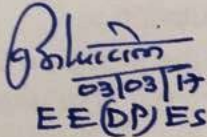 03/03/17
EE (DP) ES